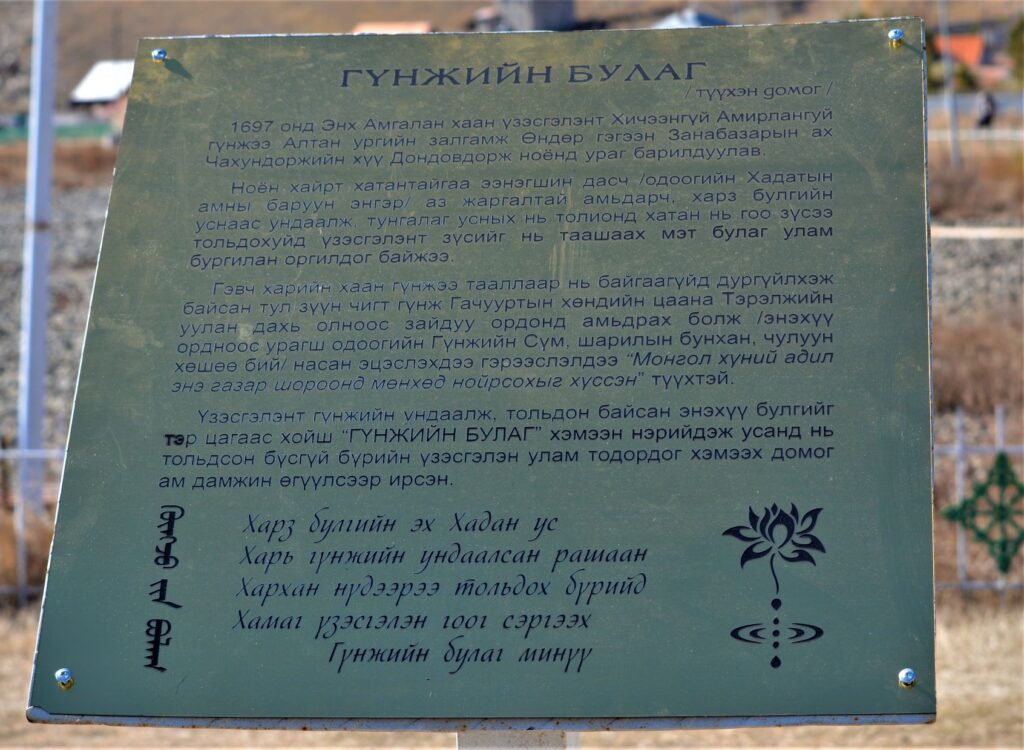 ГҮНЖИЙН БУЛАГ
/ түүхэн домог /
1697 онд Энх Амгалан хаан үзэсгэлэнт Хичээнгүй Амирлангуй
гүнжээ Алтан ургийн залгамж Өндөр гэгээн Занабазарын ах
Чахундоржийн хүү Дондовдорж ноёнд ураг барилдуулав.
Ноён хайрт хатантайгаа ээнэгшин дасч /одоогийн Хадатын
амны баруун энгэр/ аз жаргалтай амьдарч, харз булгийн
уснаас ундаалж, тунгалаг усных нь толионд хатан нь гоо зүсээ
тольдохуйд үзэсгэлэнт зүсийг нь таашаах мэт булаг улам
бургилан оргилдог байжээ.
Гэвч харийн хаан гүнжээ тааллаар нь байгаагүйд дургүйлхэж
байсан тул зүүн чигт гүнж Гачууртын хөндийн цаана Тэрэлжийн
уулан дахь олноос зайдуу ордонд амьдрах болж /энэхүү
ордноос урагш одоогийн Гүнжийн Сүм, шарилын бунхан, чулуун
хөшөө бий/ насан эцэслэхдээ гэрээслэлдээ “Монгол хүний адил
энэ газар шороонд мөнхөд нойрсохыг хүссэн” түүхтэй.
Үзэсгэлэнт гүнжийн ундаалж, тольдон байсан энэхүү булгийг
тэр цагаас хойш “ГҮНЖИЙН БУЛАГ” хэмээн нэрийдэж усанд нь
тольдсон бүсгүй бүрийн үзэсгэлэн улам тодордог хэмээх домог
ам дамжин өгүүлсээр ирсэн.
Харз булгийн эх Хадан ус
Харь гүнжийн ундаалсан рашаан
Хархан нүдээрээ тольдох бүрийд
Хамаг үзэсгэлэн гоог сэргээх
Гүнжийн булаг минүү